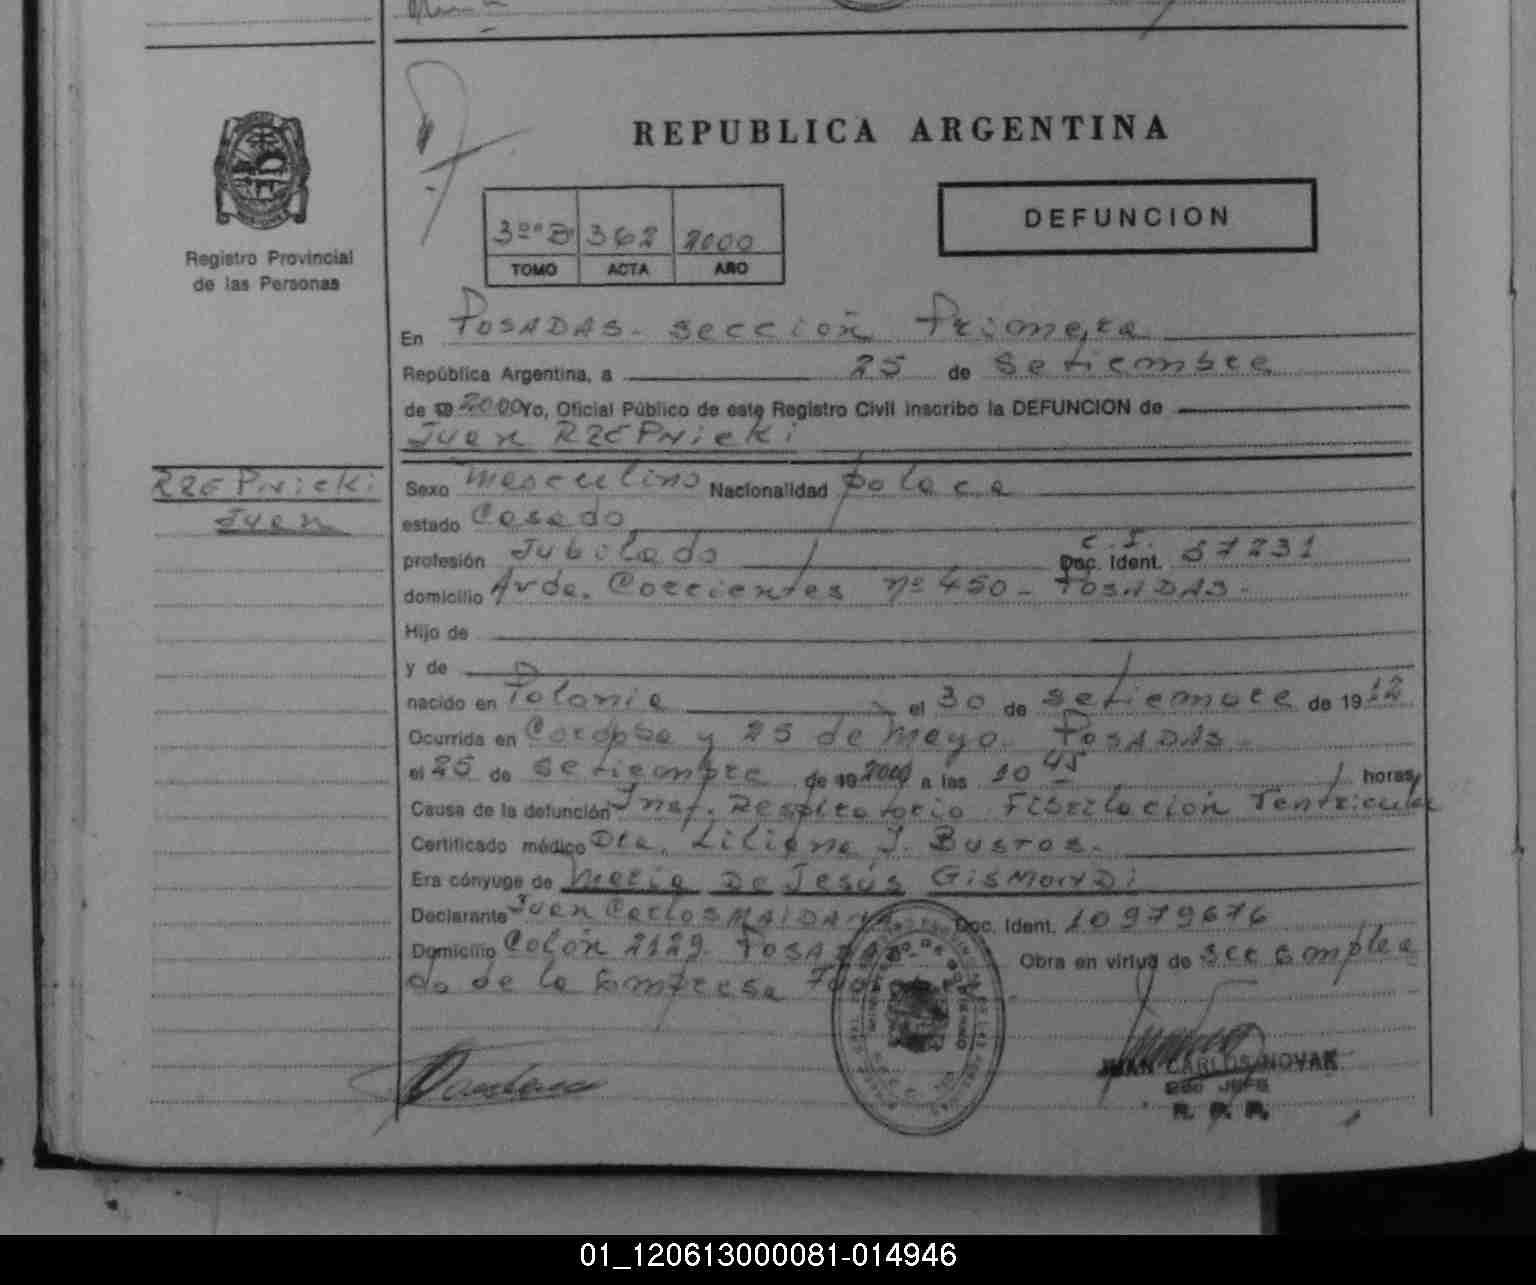 REPUBLICA ARGENTINA
Registro Provincial
de las Personas
3º"B" 362 2000
TOMO ACTA AÑO
DEFUNCION
En POSADAS - sección Primera
República Argentina, a 25 de Setiembre
de 2000 Yo, Oficial Público de este Registro Civil inscribo la DEFUNCION de
Juan RZEPNicki
RZEPNicki
Juan
Sexo masculino Nacionalidad polaca
estado Casado
profesión Jubilado C.I. Doc. Ident. 57231
domicilio Avda. Corrientes nº 450 - POSADAS -
Hijo de
y de
nacido en Polonia el 30 de setiembre de 1912
Ocurrida en Cordoba y 25 de Mayo - POSADAS -
el 25 de setiembre de 2000 a las 10 45 horas
Causa de la defunción Insf. Respiratorio Fibrilación Ventricular
Certificado médico Dra. Liliana J. Bustos.
Era cónyuge de Maria De Jesús GISMONDI
Declarante Juan Carlos MAIDANA Doc. Ident. 10979676
Domicilio Colón 2129 - POSADAS Obra en virtud de ser emplea
do de la Empresa
JUAN CARLOS NOVAK
2do JEFE
R. P. P.
01_120613000081-014946